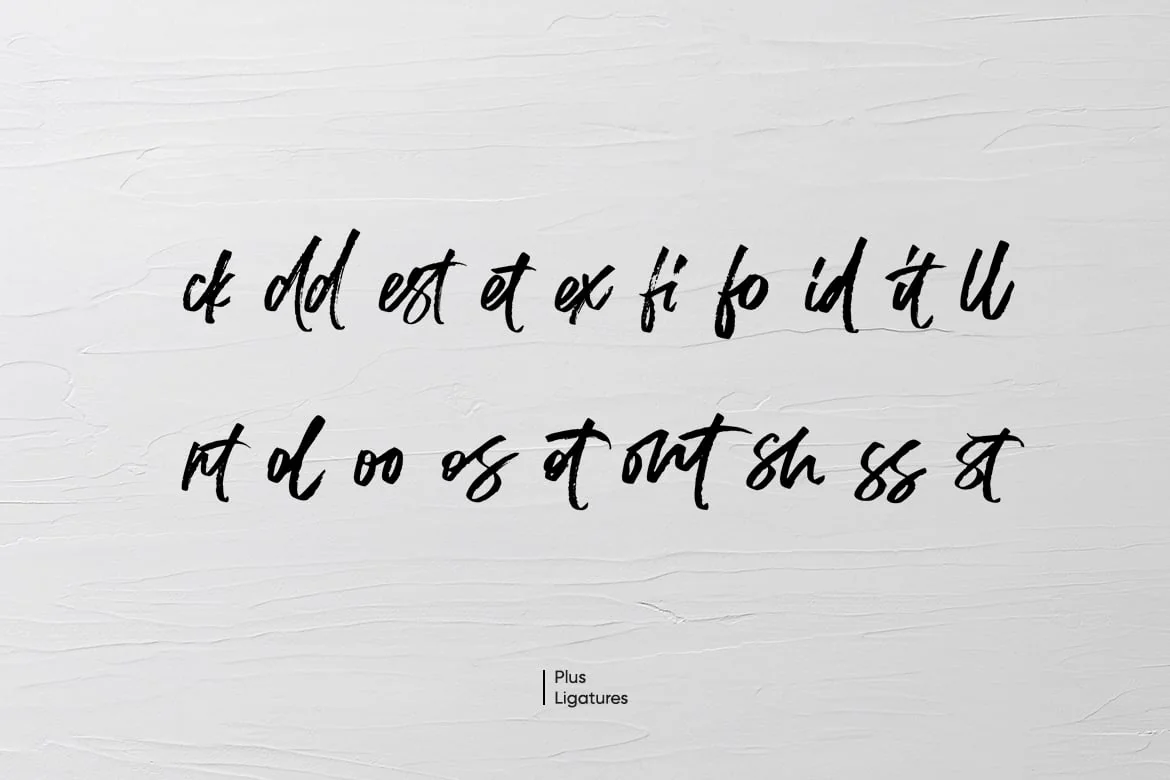 ck dd est et ex fi fo id it ll
nt ol oo os ot ont sh ss st
Plus
Ligatures